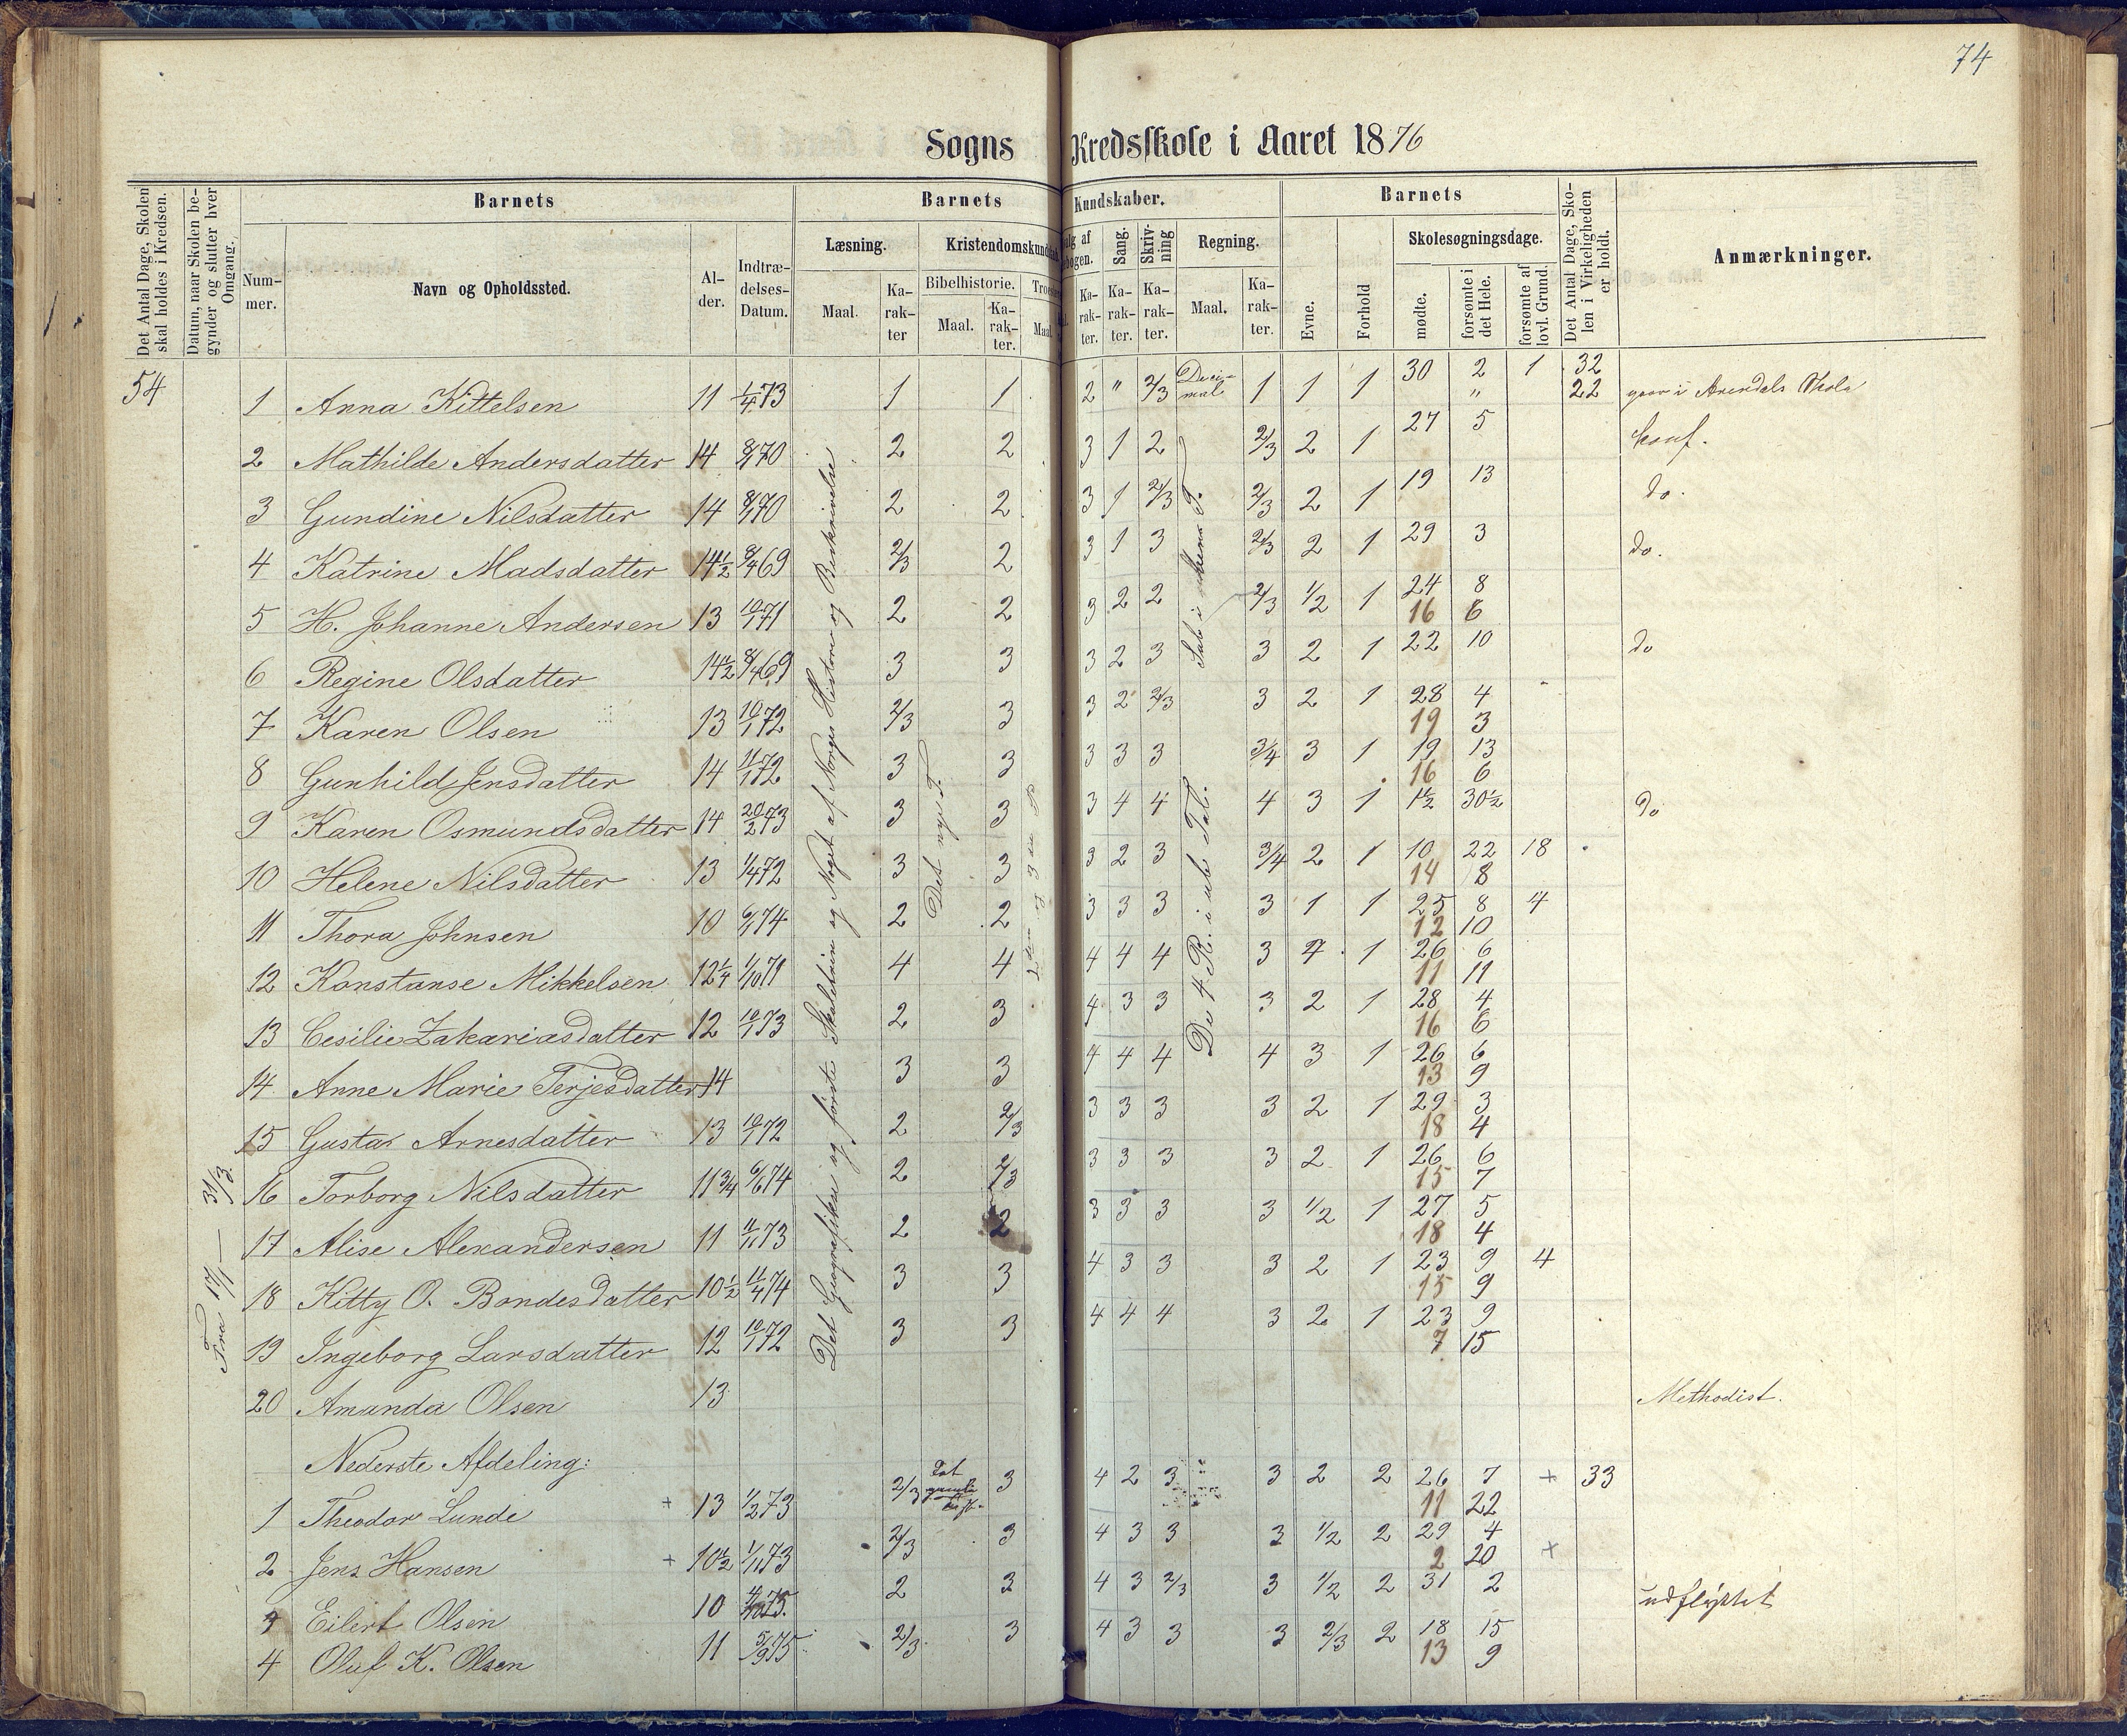 74
Sogns Kredsskole i Aaret 1876
Det Antal Dage, Skolen skal holdes i Kredsen.
Datum, naar Skolen begynder og slutter hver Omgang.
Barnets
Nummer.
Navn og Opholdssted.
Alder.
Indtrædelses-Datum.
Barnets Kundskaber.
Læsning.
Maal.
Karakter
Kristendomskundskab
Bibelhistorie.
Maal.
Karakter.
Maal
Karakter.
Sang.
Karakter.
Skrivning
Karakter.
Regning.
Maal.
Karakter.
Barnets
Evne.
Forhold
Skolesøgningsdage.
mødte.
forsømte i det Hele.
forsømte af lovl. Grund.
Det Antal Dage, Skolen i Virkeligheden er holdt.
Anmærkninger.
54
Fra 17/1 — 31/3.
Det Geografiske og første Skoletrin og Noget af Norges Historie og Beskrivelse
Det nye T.
De 4 R. i ube Tal.
1 Anna Kittelsen 11 1/4 73 1 1 2 " 2/3 Decimal 1 1 1 30 2 1 32
" 22 gaar i Arendals Skole
2 Mathilde Andersdatter 14 8/1 70 2 2 3 1 2 2/3 2 1 27 5 konf.
3 Gundine Nilsdatter 14 8/1 70 2 2 3 1 2/3 2/3 2 1 19 13 do.
4 Katrine Madsdatter 14 1/2 8/4 69 2/3 2 3 1 3 2/3 2 1 29 3 do.
5 H. Johanne Andersen 13 10/1 71 2 2 3 2 2 2/3 1/2 1 24 8
16 6
6 Regine Olsdatter 14 1/2 8/4 69 3 3 3 2 3 3 2 1 22 10 do
7 Karen Olsen 13 10/1 72 2/3 3 3 2 2/3 3 2 1 28 4
19 3
8 Gunhild Jensdatter 14 11/1 72 3 3 3 3 3 3/4 3 1 19 13
16 6
9 Karen Osmundsdatter 14 20/2 73 3 3 3 4 4 4 3 1 1 1/2 30 1/2 do
10 Helene Nilsdatter 13 1/4 72 3 3 3 2 3 3/4 2 1 10 22 18
14 8
11 Thora Johnsen 10 6/1 74 2 2 3 3 3 3 1 1 25 8 4
12 10
12 Konstanse Mikkelsen 12 1/4 1/10 71 4 4 4 4 4 3 4 1 26 6
11 11
13 Cesilie Zakariasdatter 12 10/1 73 2 3 4 3 3 3 2 1 28 4
16 6
14 Anne Marie Terjesdatter 14 3 3 4 4 4 4 3 1 26 6
13 9
15 Gustav Arnesdatter 13 10/1 72 2 2/3 3 3 3 3 2 1 29 3
18 4
16 Torborg Nilsdatter 11 3/4 6/6 74 2 2/3 3 3 3 3 2 1 26 6
15 7
17 Alise Alexandersen 11 11/11 73 2 2 3 3 3 3 1/2 1 27 5
18 4
18 Kitty O. Bondesdatter 10 1/2 11/4 74 3 3 4 3 3 3 2 1 23 9 4
15 9
19 Ingeborg Larsdatter 12 10/1 72 3 3 4 4 4 3 2 1 23 9
7 15
20 Amanda Olsen 13 Methodist.
Nederste Afdeling:
1 Theodor Lunde + 13 1/2 73 2/3 Det gamle Test. 3 4 2 3 3 2 2 26 7 + 33
11 22
2 Jens Hansen + 10 1/2 1/11 73 2/3 3 4 3 3 3 1/2 2 29 4 +
2 20
3 Eilert Olsen 10 75. 2 3 4 3 2/3 3 1/2 2 31 2 udflyttet
4 Oluf K. Olsen 11 5/9 75 2/3 3 4 3 3 3 2/3 2 18 15
13 9